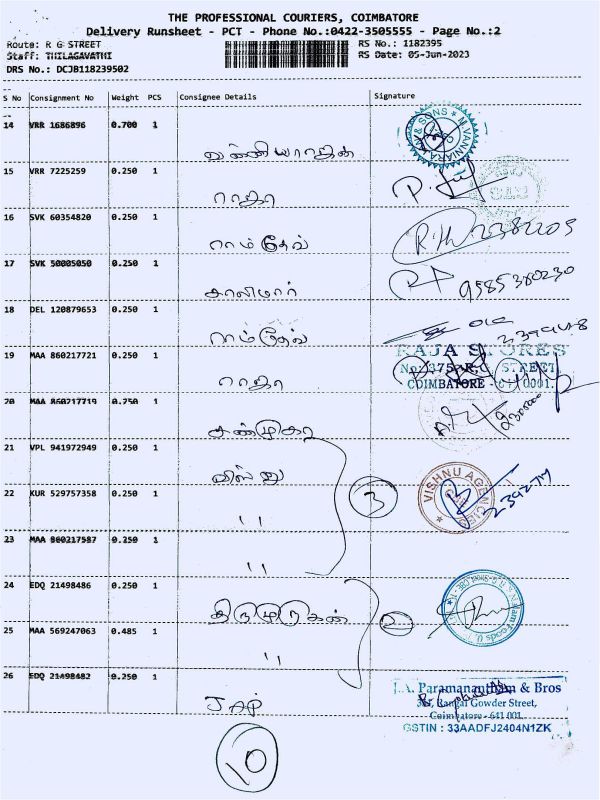 THE PROFESSIONAL COURIERS, COIMBATORE
Delivery Runsheet - PCT - Phone No.:0422-3505555 - Page No.:2
Route: R G STREET
RS No.: 1182395
Staff: THILAGAVATHI
RS Date: 05-Jun-2023
DRS No.: DCJB118239502
S No Consignment No Weight PCS Consignee Details Signature
14 VRR 1686896 0.700 1
வன்னியராஜன்
15 VRR 7225259 0.250 1
ராஜா
16 SVK 60354820 0.250 1
ராம்தேவ்
17 SVK 50005050 0.250 1
சாலிமார்
9585380230
18 DEL 120879653 0.250 1
ராம்தேவ்
19 MAA 860217721 0.250 1
ராஜா
RAJA STORES
No: 375, R.G. STREET,
COIMBATORE - 641 0001.
20 MAA 860217719 0.250 1
சண்முகா
21 VPL 941972949 0.250 1
விஸ்னு
VISHNU AGENCIES
22 KUR 529757358 0.250 1
"
3
23 MAA 860217587 0.250 1
"
24 EDQ 21498486 0.250 1
திருமுருகன்
2
25 MAA 569247063 0.485 1
"
26 EDQ 21498482 0.250 1
JAP
J.A. Paramanantham & Bros
Rangai Gowder Street,
Coimbatore - 641 001.
GSTIN : 33AADFJ2404N1ZK
10